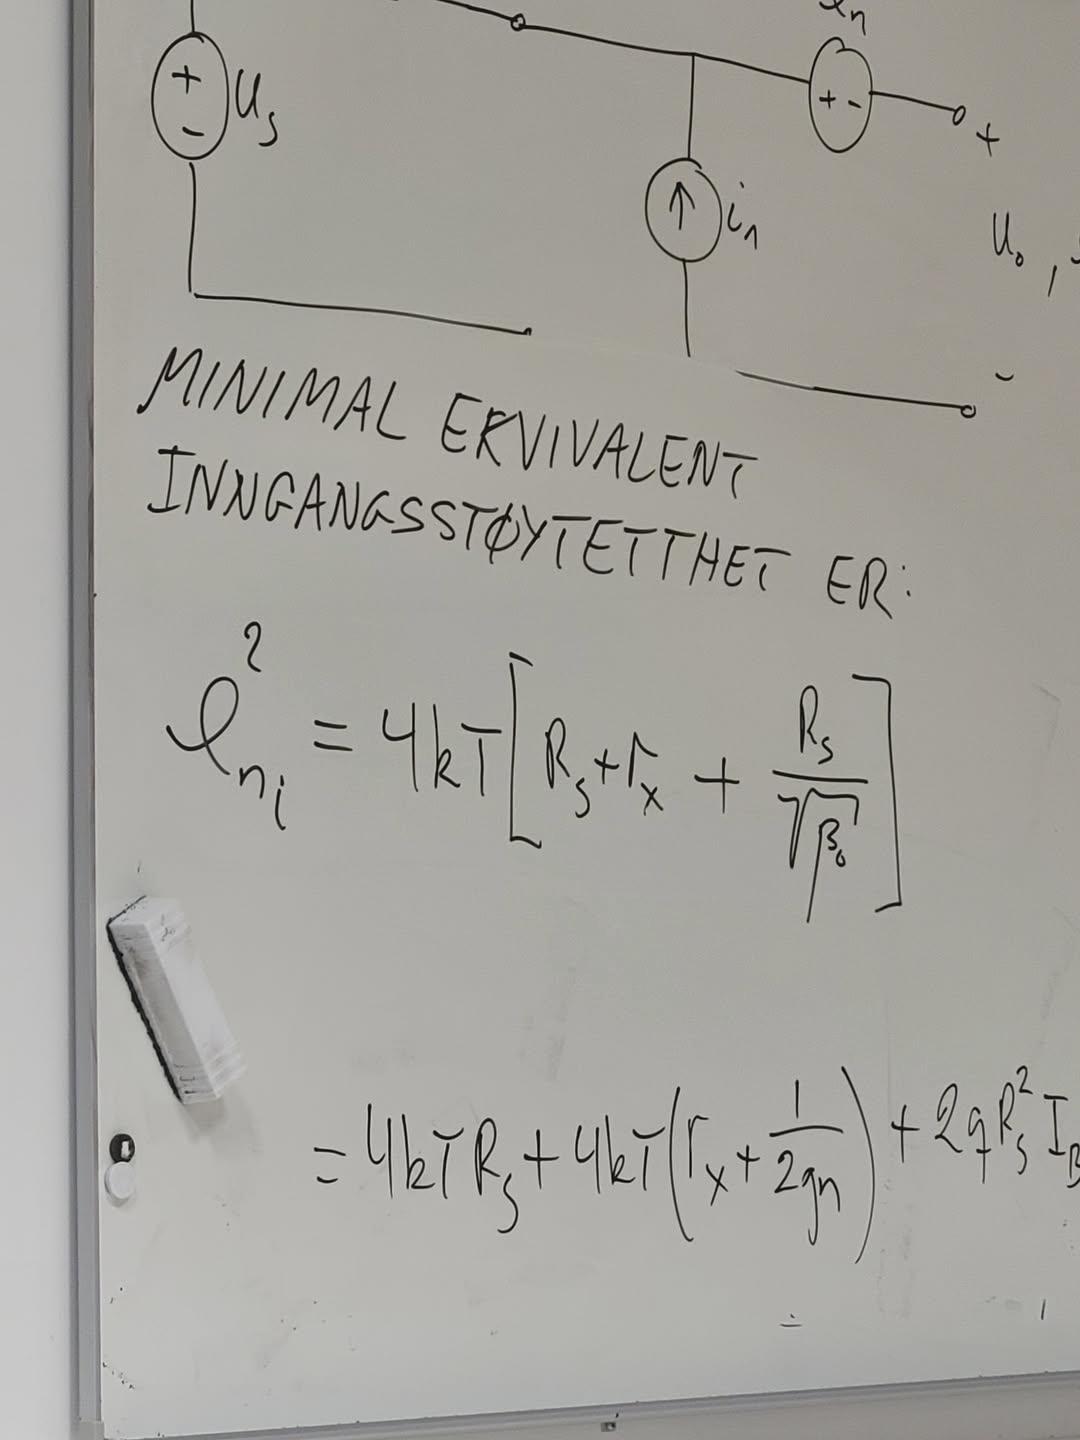 +
-
U_s
+ -
+
i_n
U_o ,
-
MINIMAL EKVIVALENT
INNGANGSSTØYTETTHET ER:
e_{ni}^2 = 4kT[R_s + r_x + R_s/√β_0]
= 4kTR_s + 4kT(r_x + 1/2gm) + 2qR_s^2 I_B